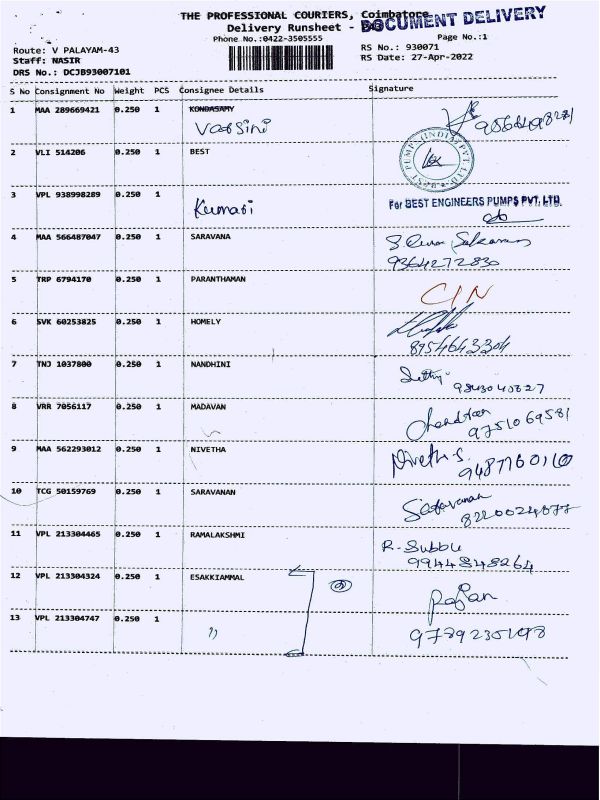 THE PROFESSIONAL COURIERS, Coimbatore
DOCUMENT DELIVERY
Delivery Runsheet -
Phone No.:0422-3505555
Page No.:1
Route: V PALAYAM-43
RS No.: 930071
Staff: NASIR
RS Date: 27-Apr-2022
DRS No.: DCJB93007101
S No Consignment No Weight PCS Consignee Details Signature
1 MAA 289669421 0.250 1 KONDASAMY
Varsini
2 VLI 514206 0.250 1 BEST
3 VPL 938998289 0.250 1
Kumari
For BEST ENGINEERS PUMPS PVT. LTD.
4 MAA 566487047 0.250 1 SARAVANA
9364272830
5 TRP 6794170 0.250 1 PARANTHAMAN
C/N
6 SVK 60253825 0.250 1 HOMELY
8954643304
7 TNJ 1037800 0.250 1 NANDHINI
8 VRR 7056117 0.250 1 MADAVAN
9751069581
9 MAA 562293012 0.250 1 NIVETHA
Nivetha.S.
10 TCG 50159769 0.250 1 SARAVANAN
Saravanan
11 VPL 213304465 0.250 1 RAMALAKSHMI
R. Subbu
9944848264
12 VPL 213304324 0.250 1 ESAKKIAMMAL
Rajan
13 VPL 213304747 0.250 1
"